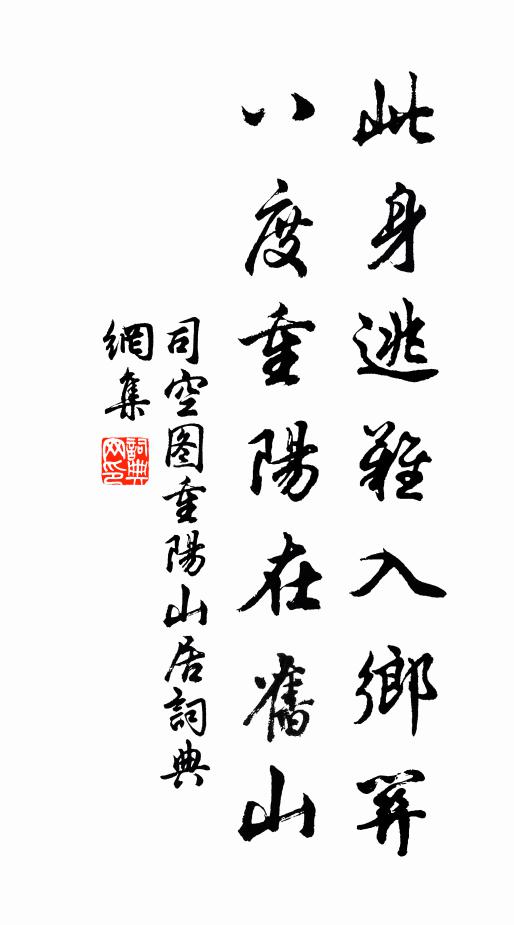 此身逃難入鄉關
八度重陽在舊山
司空图重陽山居詞典
網集
詞典网印